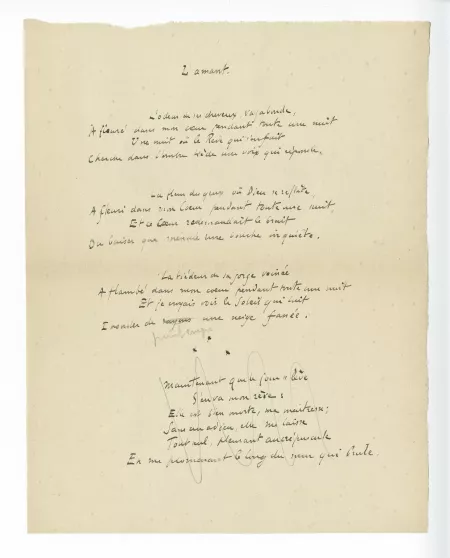 L'amant.
L'odeur de ses cheveux vagabonde,
A fleuré dans mon cœur pendant toute une nuit
Une nuit où le Rêve qui
Cherche dans l'ombre vide une voix qui réponde.
La fleur du yeux où Dieu se reflète,
A fleuri dans mon Cœur pendant toute une nuit,
Et ce Cœur redemandait le bruit
Du baiser que une bouche inquiète.
La tiédeur de sa gorge
A flambé dans mon cœur pendant toute une nuit
Et je croyais voir le Soleil qui luit
Inonder de une neige fanée.
* * *
Maintenant que le jour se lève
Suivra mon rêve :
Elle est bien morte, ma maîtresse ;
Sans un adieu elle me laisse
Tout seul, pleurant
En me promenant le long du mur qui